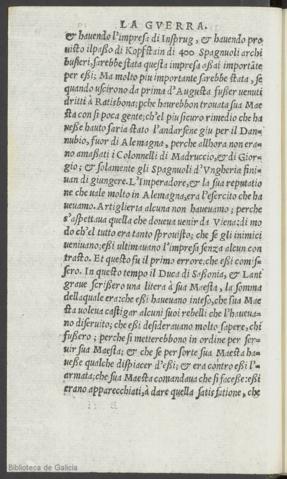 LA GVERRA.
& hauendo l'impresa di Insprug, & hauendo pro
uisto il passo di Kopfstain di 400 Spagnuoli archi
busieri, sarebbe stata questa impresa assai importãte
per essi; Ma molto piu importante sarebbe stata, se
quando uscirono da prima d'Augusta fusser uenuti
dritti à Ratisbona; pche haurebbon trouata sua Mae
sta con si poca gente; ch'el piu sicuro rimedio che ha
uesse hauto saria stato l'andarsene giu per il Dan-
nubio, fuor di Alemagna, perche allhora non era-
no amassati i Colonnelli di Madruccio, & di Gior-
gio; & solamente gli Spagnuoli d'Vngheria fini-
uan di giungere. L'Imperadore, & la sua reputatio
ne che uale molto in Alemagna, era l'esercito che ha
ueuamo. Artiglieria alcuna non haueuamo; perche
s'aspettaua quella che doueua uenir da Viena: di mo
do ch'el tutto era tanto sproisto; che se gli inimici
ueniuano; essi ultimauano l'impresa senza alcun con
trasto. Et questo fu il primo errore, che essi comis-
sero. In questo tempo il Duca di Sassonia, & Lant
graue scrissero una litera à sua Maesta, la somma
della quale era: che essi haueuano inteso, che sua Mae
sta uoleua castigar alcuni suoi rebelli che l'haueua-
no diseruito; che essi desiderauano molto sapere, chi
fussero; perche si metterebbono in ordine per ser-
uir sua Maesta; & che se per sorte sua Maesta ha-
uesse qualche dispiacer d'essi; & era contro essi l'-
armata; che sua Maesta comandaua che si facesse: essi
erano apparecchiati, à dare quella satisfatione, che
Biblioteca de Galicia